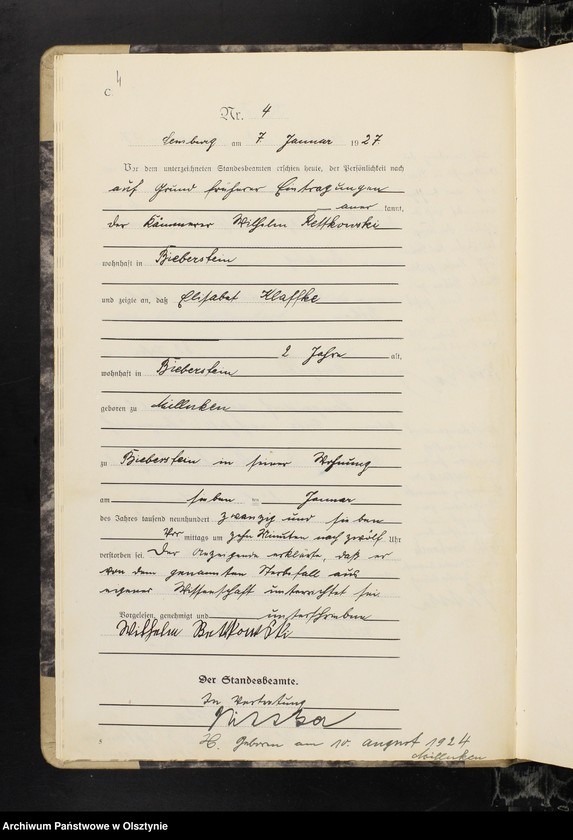 4
C.
Nr. 4
Lemberg am 7 Januar 1927.
Vor dem unterzeichneten Standesbeamten erschien heute, der Persönlichkeit nach
auf Grund früherer Eintragungen
aner kannt,
der Kämmerer Wilhelm Rettkowski
wohnhaft in Bieberstein
und zeigte an, daß Elisabet Klaffke
2 Jahre alt,
wohnhaft in Bieberstein
geboren zu Millenken
zu Bieberstein in seiner Wohnung
am sieben ten Januar
des Jahres tausend neunhundert zwanzig und sieben
Vor mittags um zehn Minuten nach zwölf Uhr
verstorben sei. Der Anzeigende erklärte, daß er
von dem genannten Sterbfall aus
eigener Wissenschaft unterrichtet sei
Vorgelesen, genehmigt und unterschrieben
Wilhelm Rettkowski
Der Standesbeamte.
In Vertretung
H. Geboren am 10. August 1924
Millenken
Archiwum Państwowe w Olsztynie